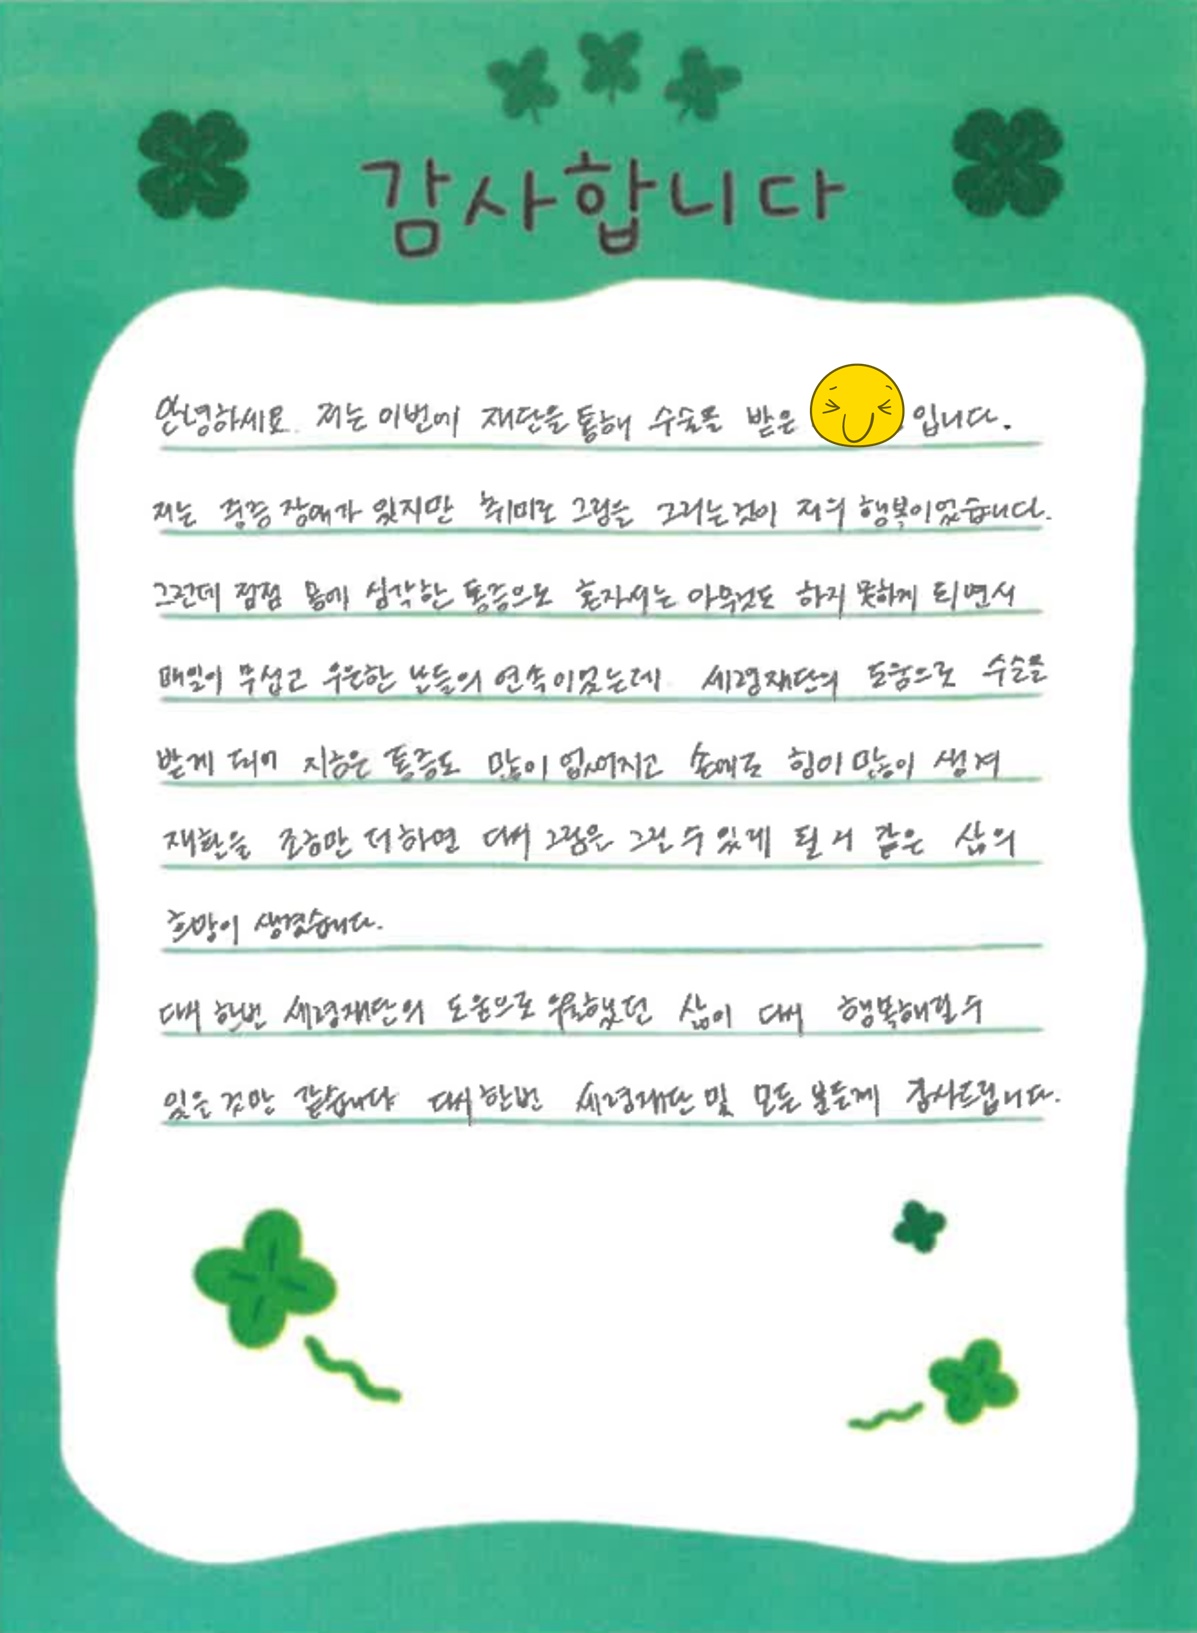 감사합니다
안녕하세요. 저는 이번에 재단을 통해 수술을 받은 입니다.
저는 중증 장애가 있지만 취미로 그림을 그리는것이 저의 행복이었습니다.
그런데 점점 몸에 심각한 통증으로 혼자서는 아무것도 하지 못하게 되면서
매일이 무섭고 우울한 날들의 연속이었는데 세령재단의 도움으로 수술을
받게 되어 지금은 통증도 많이 없어지고 손에도 힘이 많이 생겨
재활을 조금만 더 하면 다시 그림을 그릴 수 있게 될 거 같은 삶의
희망이 생겼습니다.
다시 한번 세령재단의 도움으로 우울했던 삶이 다시 행복해질 수
있을 것만 같습니다 다시한번 세령재단 및 모든 분들께 감사드립니다.